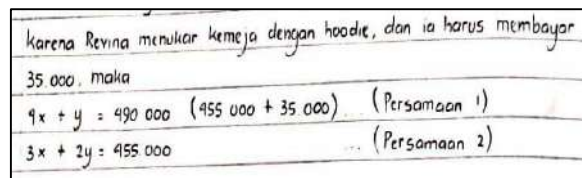 karena Revina menukar kemeja dengan hoodie, dan ia harus membayar
35.000, maka
4x + y = 490 000 (455 000 + 35.000) ... (Persamaan 1)
3x + 2y = 455.000 ... (Persamaan 2)